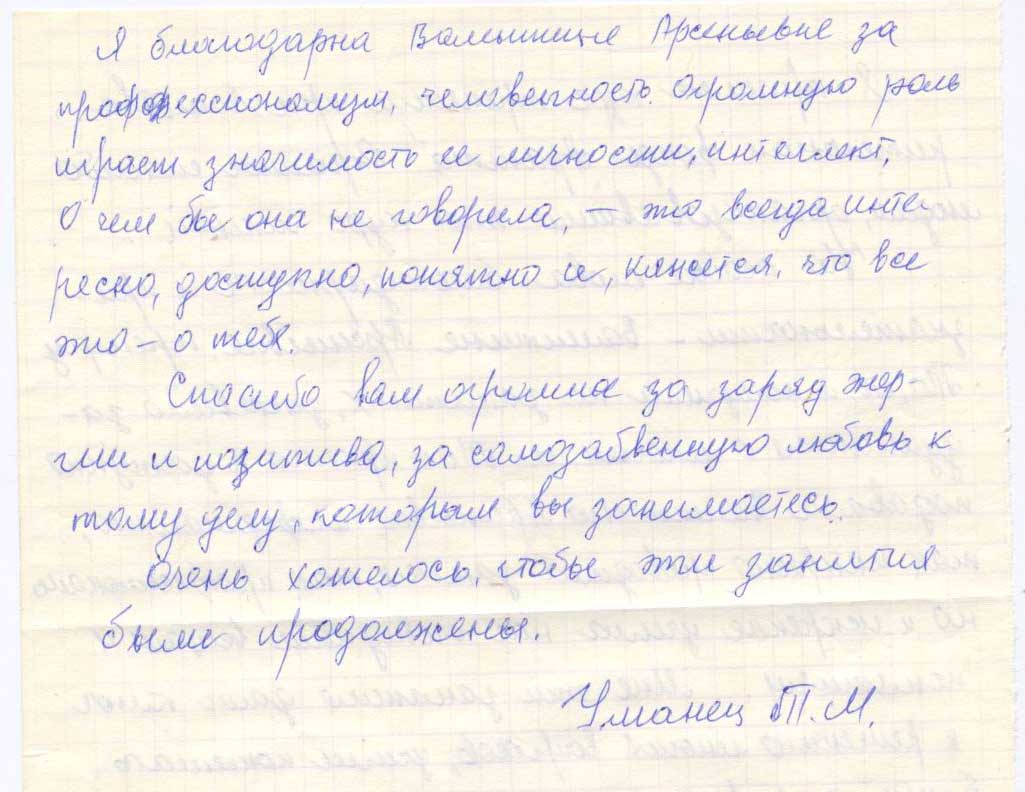 Я благодарна Валентине Арсеньевне за
профессионализм, человечность. Огромную роль
играет значимость ее личности, интеллект,
О чем бы она не говорила, – это всегда инте-
ресно, доступно, понятно и, кажется, что все
это – о тебе.
Спасибо вам огромное за заряд энер-
гии и позитива, за самозабвенную любовь к
тому делу, которым вы занимаетесь.
Очень хотелось, чтобы эти занятия
были продолжены.
Уманец Т.М.